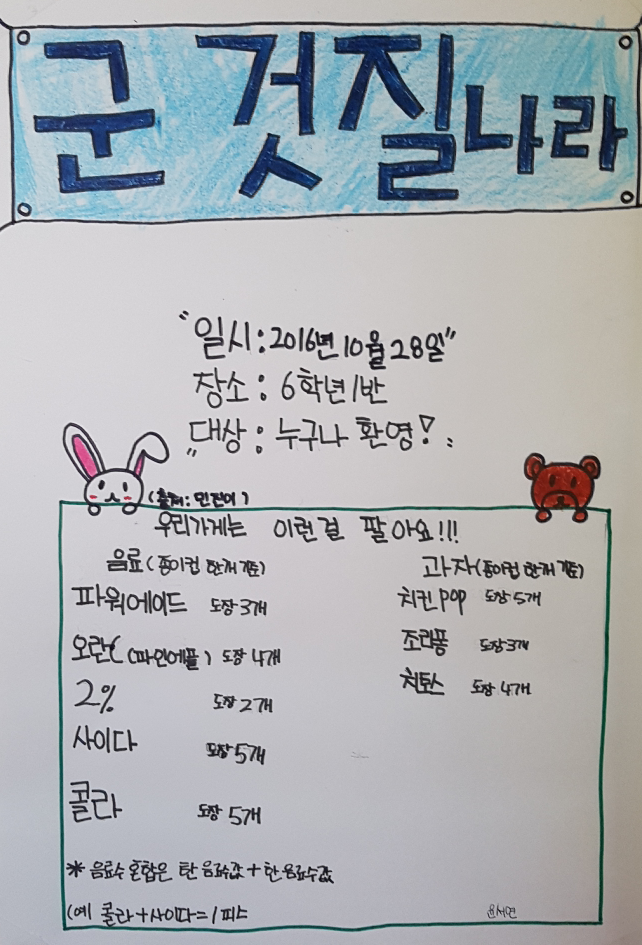 군것질나라
"일시:2016년 10월 28일"
장소: 6학년 1반
대상: 누구나 환영!
(출처: 민진이)
우리가게는 이런걸 팔아요!!!
음료(종이컵 한개 기준)
파워에이드 도장 3개
오란C (파인애플) 도장 4개
2% 도장 2개
사이다 도장 5개
콜라 도장 5개
과자(종이컵 한개 기준)
치킨pop 도장 5개
조리퐁 도장 3개
치토스 도장 4개
* 음료수 혼합은 탄 음료수값 + 한 음료수값
(예 콜라+사이다=1피스
윤서연